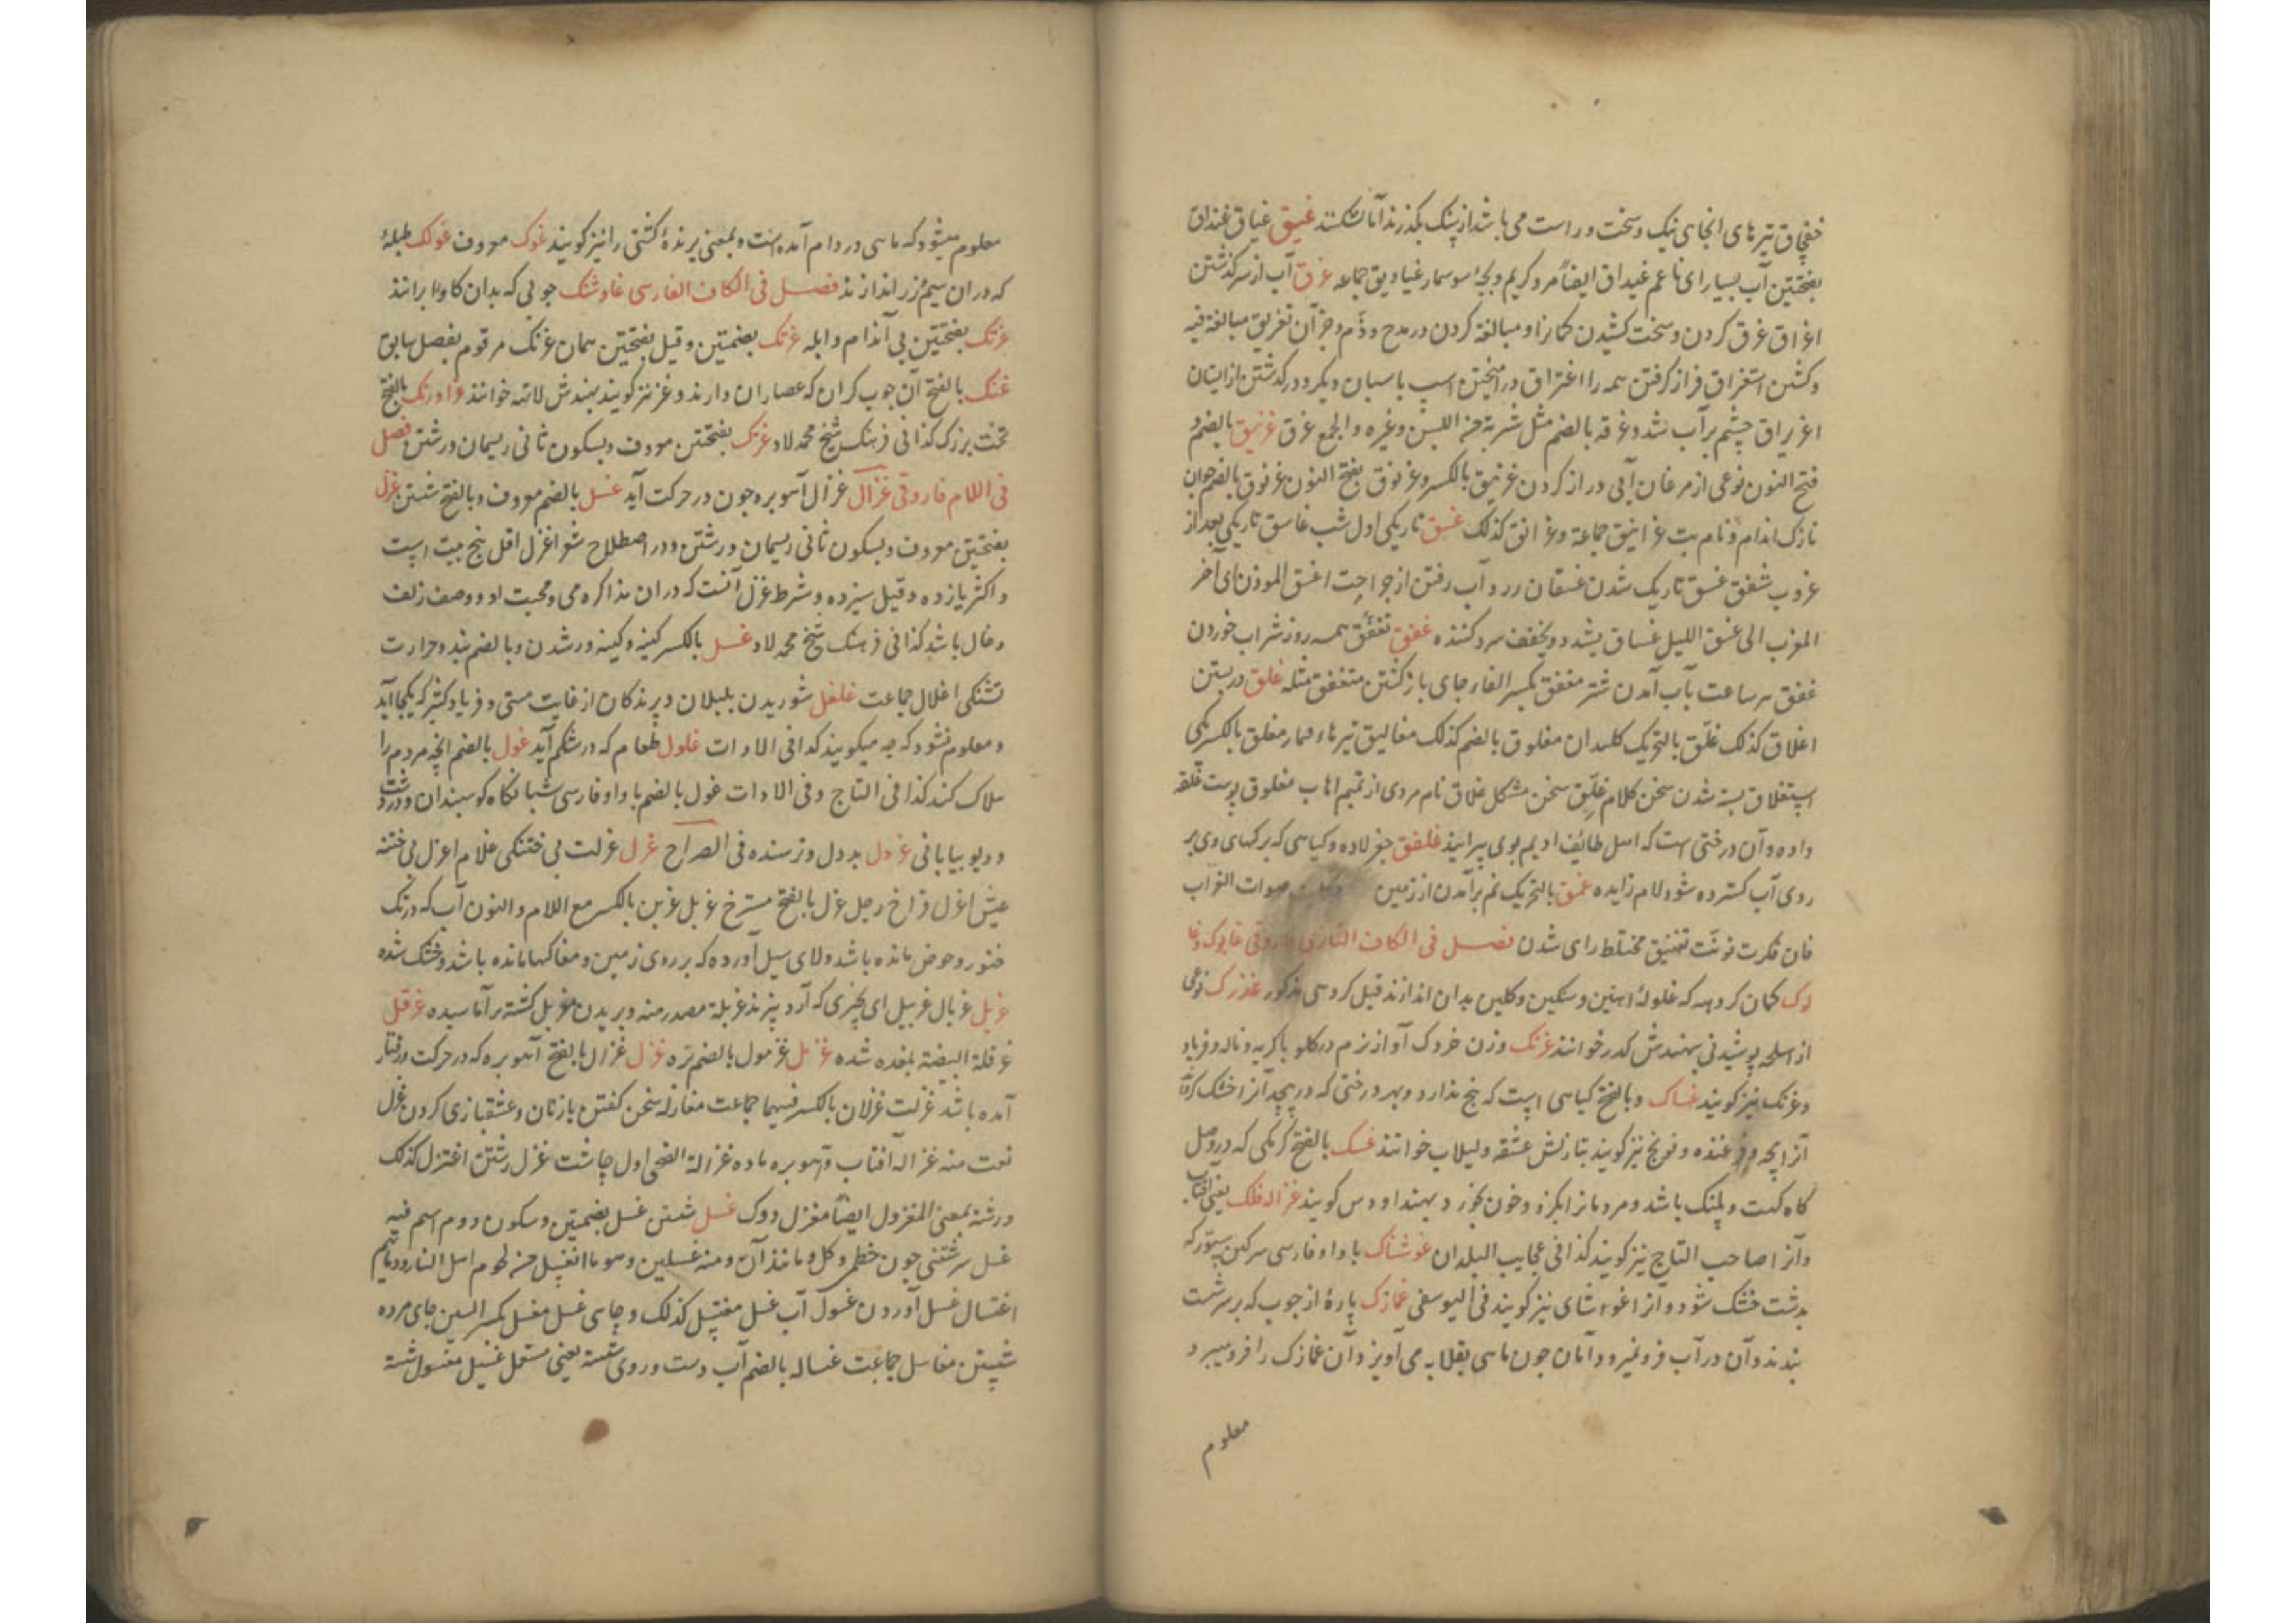 خفچاق تیرهای انجای نیک و سخت و راست می باشد از پشک بگذرند اما نشکنند غیق غیاق غنداق
بفتحتین آب بسیار ای ناعم غیداق ایضا مرد کریم و بچه سوسمار غیادیق جماعه غرق آب از سر گذشتن
اغراق غرق کردن و سخت کشیدن کمانرا و مبالغه کردن در مدح و ذم و جز آن تغریق مبالغة فیه
و کشتن استغراق فراز گرفتن همه را اغتراق در آمیختن اسپ با سپان دیگر و در گذشتن از ایشان
اغریراق چشم پر آب شد و غرقه بالضم مثل شربة من اللبن و غیره والجمع غرق غرنیق بالضم و
فتح النون نوعی از مرغان آبی دراز گردن غرنیق بالکسر و غرنوق بفتح النون غرنوق بالضم جوان
نازک اندام و نام بت غرانیق جماعة و غرانق کذلک غسق تاریکی اول شب غاسق تاریکی بعد از
غروب شفق غسق تاریک شدن غسقان زرد آب رفتن از جراحت اغسق الموذن ای آخر
المغرب الی غسق اللیل غساق بشدد و یخفف سرد کننده غفق تغفق همه روز شراب خوردن
غفق هر ساعت بآب آمدن شتر مغفق بکسر الفاء جای باز گشتن متغفق مثله غلق در بستن
اغلاق کذلک غلق بالتحریک کلیدان مغلوق بالضم کذلک مغالیق تیرهاء قمار مغلق بالکسر یکی
استغلاق بسته شدن سخن کلام غلق سخن مشکل غلاق نام مردی از تمیم اهاب مغلوق پوست غلقه
داده و آن درختی است که اهل طائف ادیم بوی پیرایند غلفق جغز لاده و گیاهی که برگهای وی بر
روی آب گسترده شود و لام زایده غمق بالتحریک نم بر آمدن از زمین صوات الغراب
فصل فی الکاف التازی فاروقی غابوک و غا
لوک کمان گروهه که غلولهٔ آهنین و سنگین و گلین بدان اندازند قیل گروهی مذکور غدرک نوعی
از اسلحه پوشیدنی بهندش کدر خوانند غرنک وزن خردک آواز نرم در گلو با گریه و ناله و فریاد
و غرنگ نیز گویند غساک وبالفتح گیاهی است که بیخ ندارد و بهر درختی که در پیچد آنرا خشک کرداند
آنرا پیچه و غنده و نویج نیز گویند بتازیش عشقه و لبلاب خوانند غسک بالفتح کرمکی که در وصل
گاه کهت و پلنک باشد و مردمانرا بگزد و خون بخورد و بهند اودس گویند غزاله فلک یعنی آفتاب
و آنرا صاحب التاج نیز گویند کذا فی عجایب البلدان غوشاک با واو فارسی سرگین ستور که
بدشت خشک شود و آنرا غوشای نیز گویند فی الیوسفی غمازک پارهٔ از چوب که بر سر شست
بندند و آن در آب فرو نمیرود و آنان چون ماهی بقلابه می آویزد آن غمازک را فرو میبرد
معلوم
معلوم میشود که ماهی در دام آمده است و بمعنی پرندهٔ کشتی را نیز گویند غوک معروف غولک طبلهٔ
که دران سیم و زر اندازند فصل فی الکاف الفارسی غاوشنک چوبی که بدان گاو را برانند
غرنک بفتحتین بی اندام و ابله غرنک بضمتین و قیل بفتحتین همان غرنک مرقوم بفصل سابق
غنک بالفتح آن چوب گران که عصاران دارند و غز نیز گویند بهندش لاتهه خوانند غاورنک بالفتح
تخت بزرگ کذا فی فرهنگ شیخ محمد لاد غزنک بفتحتین معروف و بسکون ثانی ریسمان در رشتن فصل
فی اللام فاروقی غزال غزال آهو بره چون در حرکت آید غسل بالضم معروف و بالفتح شستن غزل
بفتحتین معروف و بسکون ثانی ریسمان در رشتن و در اصطلاح شعرا غزل اقل پنج بیت است
و اکثر یازده و قیل سیزده و شرط غزل آنست که دران مذاکره می و محبت او و وصف زلف
و خال باشد کذا فی فرهنک شیخ محمد لاد غل بالکسر کینه و کینه ور شدن و بالضم بند و حرارت
تشنگی اغلال جماعت غلغل شوریدن بلبلان و پرندگان از غایت مستی و فریاد کثیر که یکجا آید
و معلوم نشود که چه میگویند کذا فی الادات غلول طعام که در شکم آید غول بالضم انچه مردم را
هلاک کند کذا فی التاج و فی الادات غول بالضم با واو فارسی شبانگاه گوسپندان در دشت
و دیو بیابانی غردل بددل و ترسنده فی الصراح غرل غرلت بی ختنگی غلام اغرل بی ختنه
عیش اغرل فراخ رجل غرل بالفتح مسترخ غریل غرین بالکسر مع اللام والنون آب که در تک
خنور و حوض مانده باشد و لای سیل آورده که بر روی زمین و مغاکها مانده باشد و خشک شده
غربل غربال غربیل ای پچیزی که آرد بیزند غربلة مصدر منه و بریدن مغربل کشته بر آماسیده غرقل
غرقلة البیضة بفده شده غرمل غرمول بالضم نره غزل غزال بالفتح آهو بره که در حرکت و رفتار
آمده باشد غزلت غزلان بالکسر فیهما جماعت مغازله سخن گفتن با زنان و عشقبازی کردن غزل
نعت منه غزاله آفتاب و آهو بره ماده غزالة الضحی اول چاشت غزل رشتن اغتزل کذلک
و رشته بمعنی المغزول ایضا مغزل دوک غسل شستن غسل بضمتین و سکون دوم اسم فیه
غسل سر شستنی چون خطمی و گل و مانند آن و منه غسلین و هو ما انغسل من لحوم اهل النار و دمائهم
اغتسال غسل آوردن غسول آب غسل مغتسل کذلک و جای غسل مغسل بکسر السین جای مرده
شستن مغاسل جماعت غساله بالضم آب دست و روی شسته یعنی مستعمل غسیل مغسول شسته